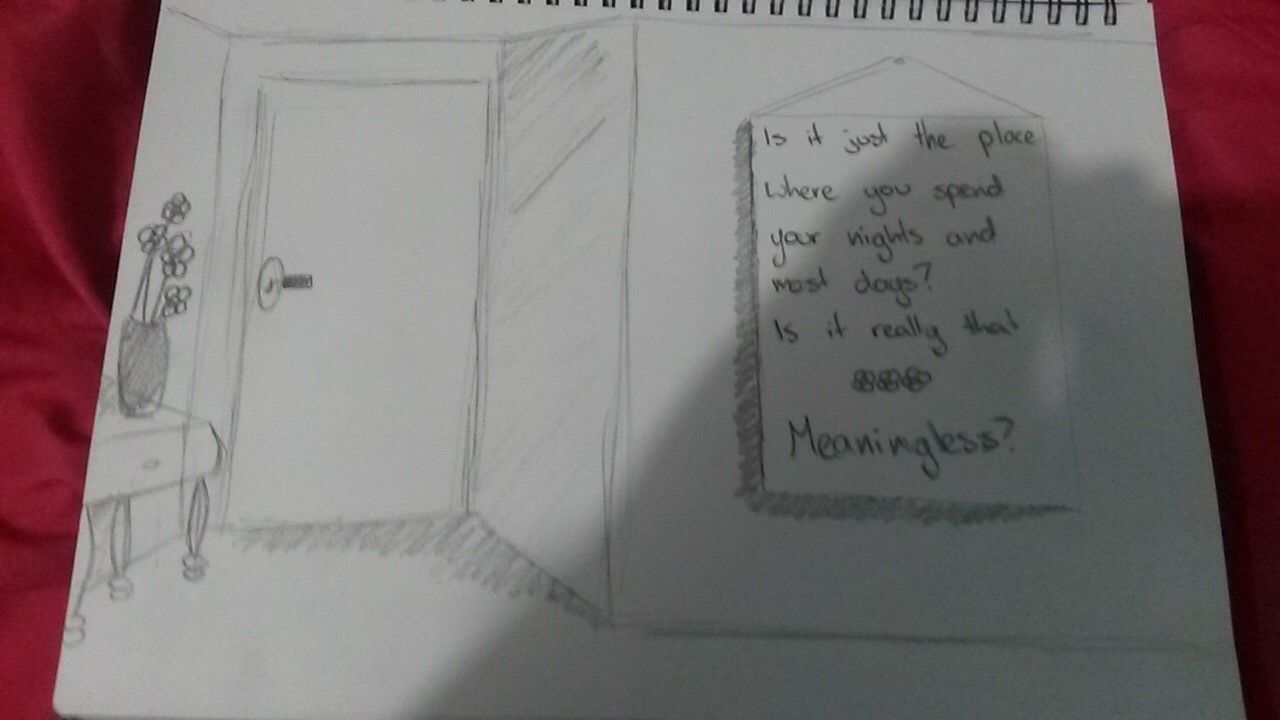 Is it just the place
Where you spend
your nights and
most days?
Is it really that
Meaningless?